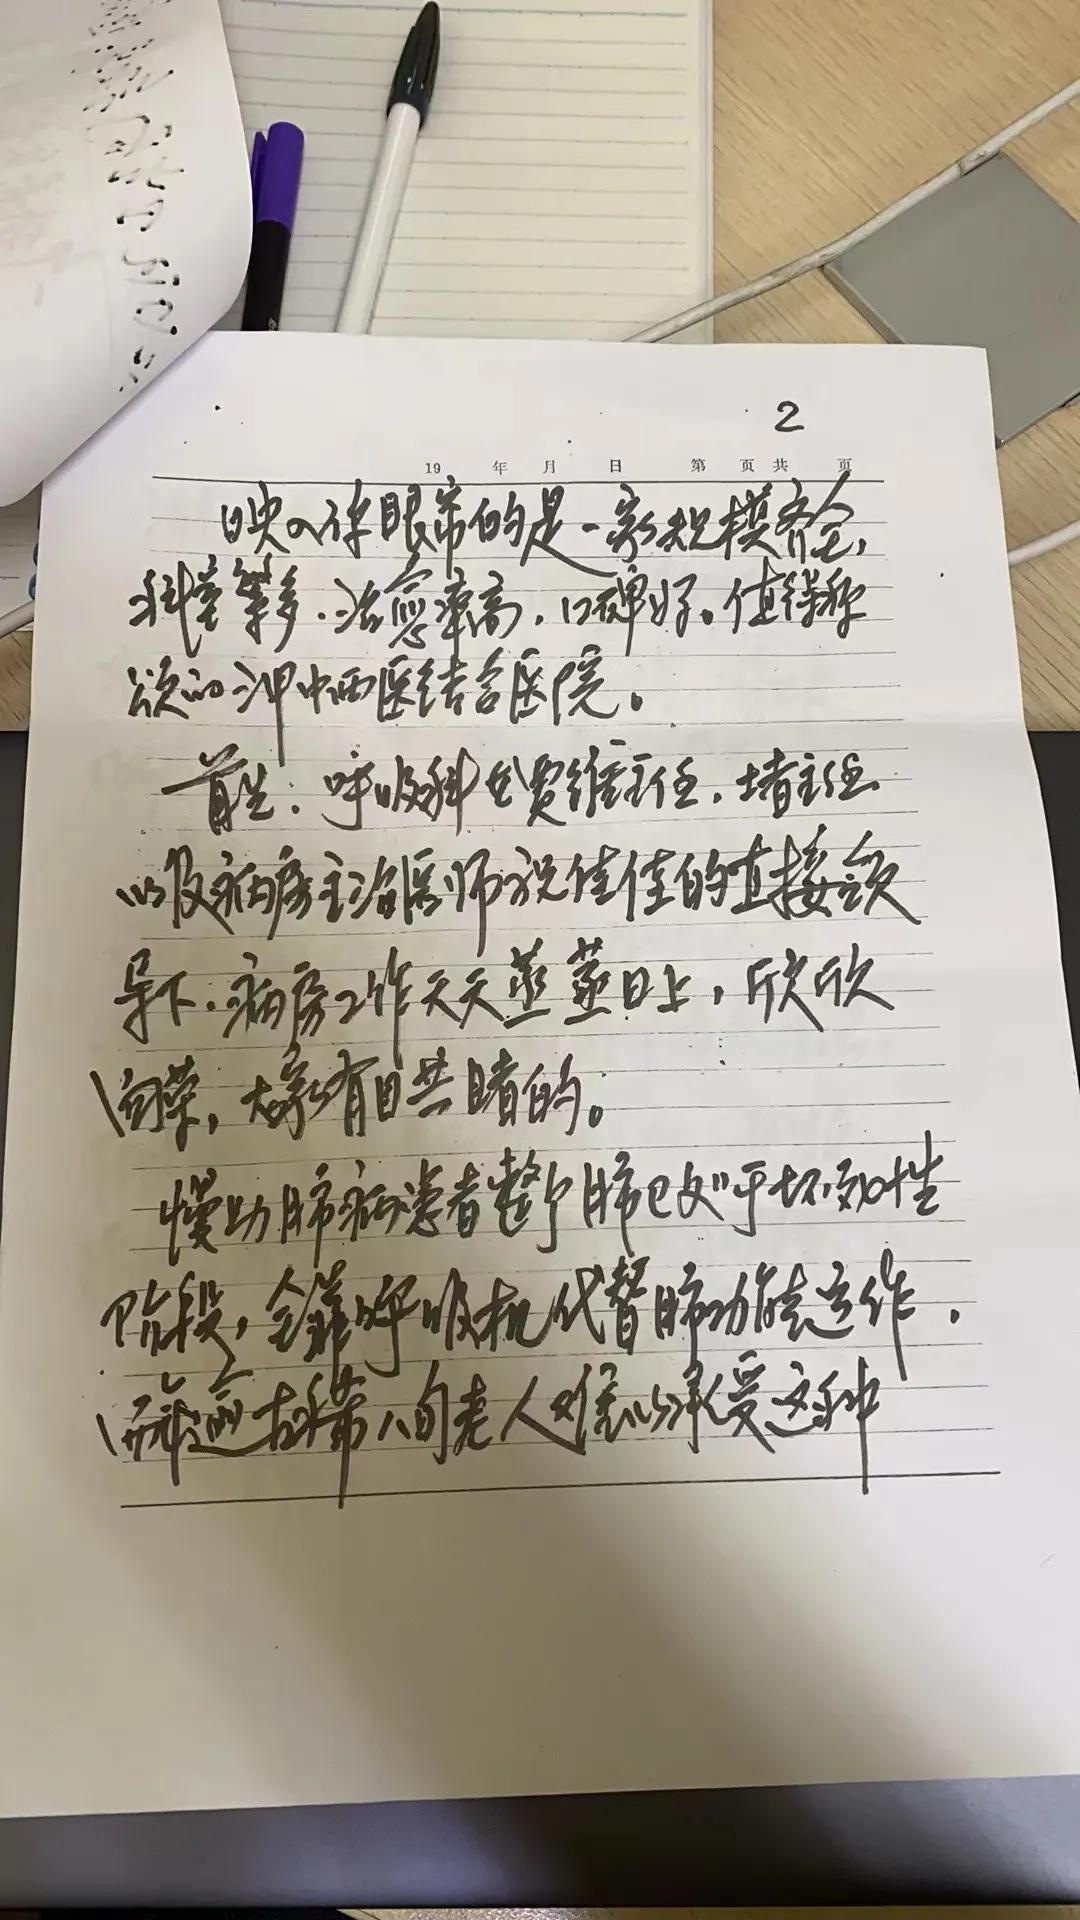 2
19 年 月 日 第 页共 页
映入你眼帘的是一家规模齐全,
科室繁多.治愈率高,口碑好。值得称
颂的沪中西医结合医院。
首先:呼吸科 费维主任.堵主任
以及病房主治医师祝佳佳的直接领
导下.病房工作天天蒸蒸日上,欣欣
向荣,大家有目共睹的。
慢助肺病患者整个肺已处于坏死性
阶段,全靠呼吸机代替肺功能运作.
古稀 八旬老人难以承受这种